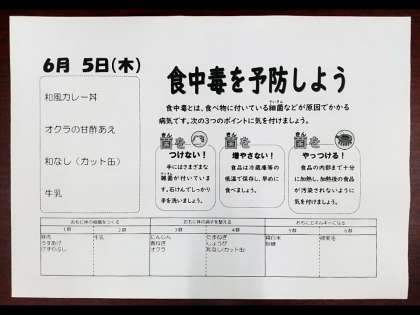 6月 5日(木)
和風カレー丼
オクラの甘酢あえ
和なし（カット缶）
牛乳
食中毒を予防しよう
食中毒とは、食べ物に付いている細菌などが原因でかかる
病気です。次の3つのポイントに気を付けましょう。
菌を
つけない！
手にはさまざまな
細菌が付いていま
す。石けんでしっかり
手を洗いましょう。
菌を
増やさない！
食品は冷蔵庫等の
低温で保存し、早めに
食べましょう。
菌を
やっつける！
食品の内部まで十分
に加熱し、加熱後の食品
が汚染されないように
気を付けましょう。
おもに体の組織をつくる
おもに体の調子を整える
おもにエネルギーになる
1群
2群
3群
4群
5群
6群
豚肉
うすあげ
けずりぶし
牛乳
にんじん
青ねぎ
オクラ
たまねぎ
しょうが
和なし(カット缶)
精白米
砂糖